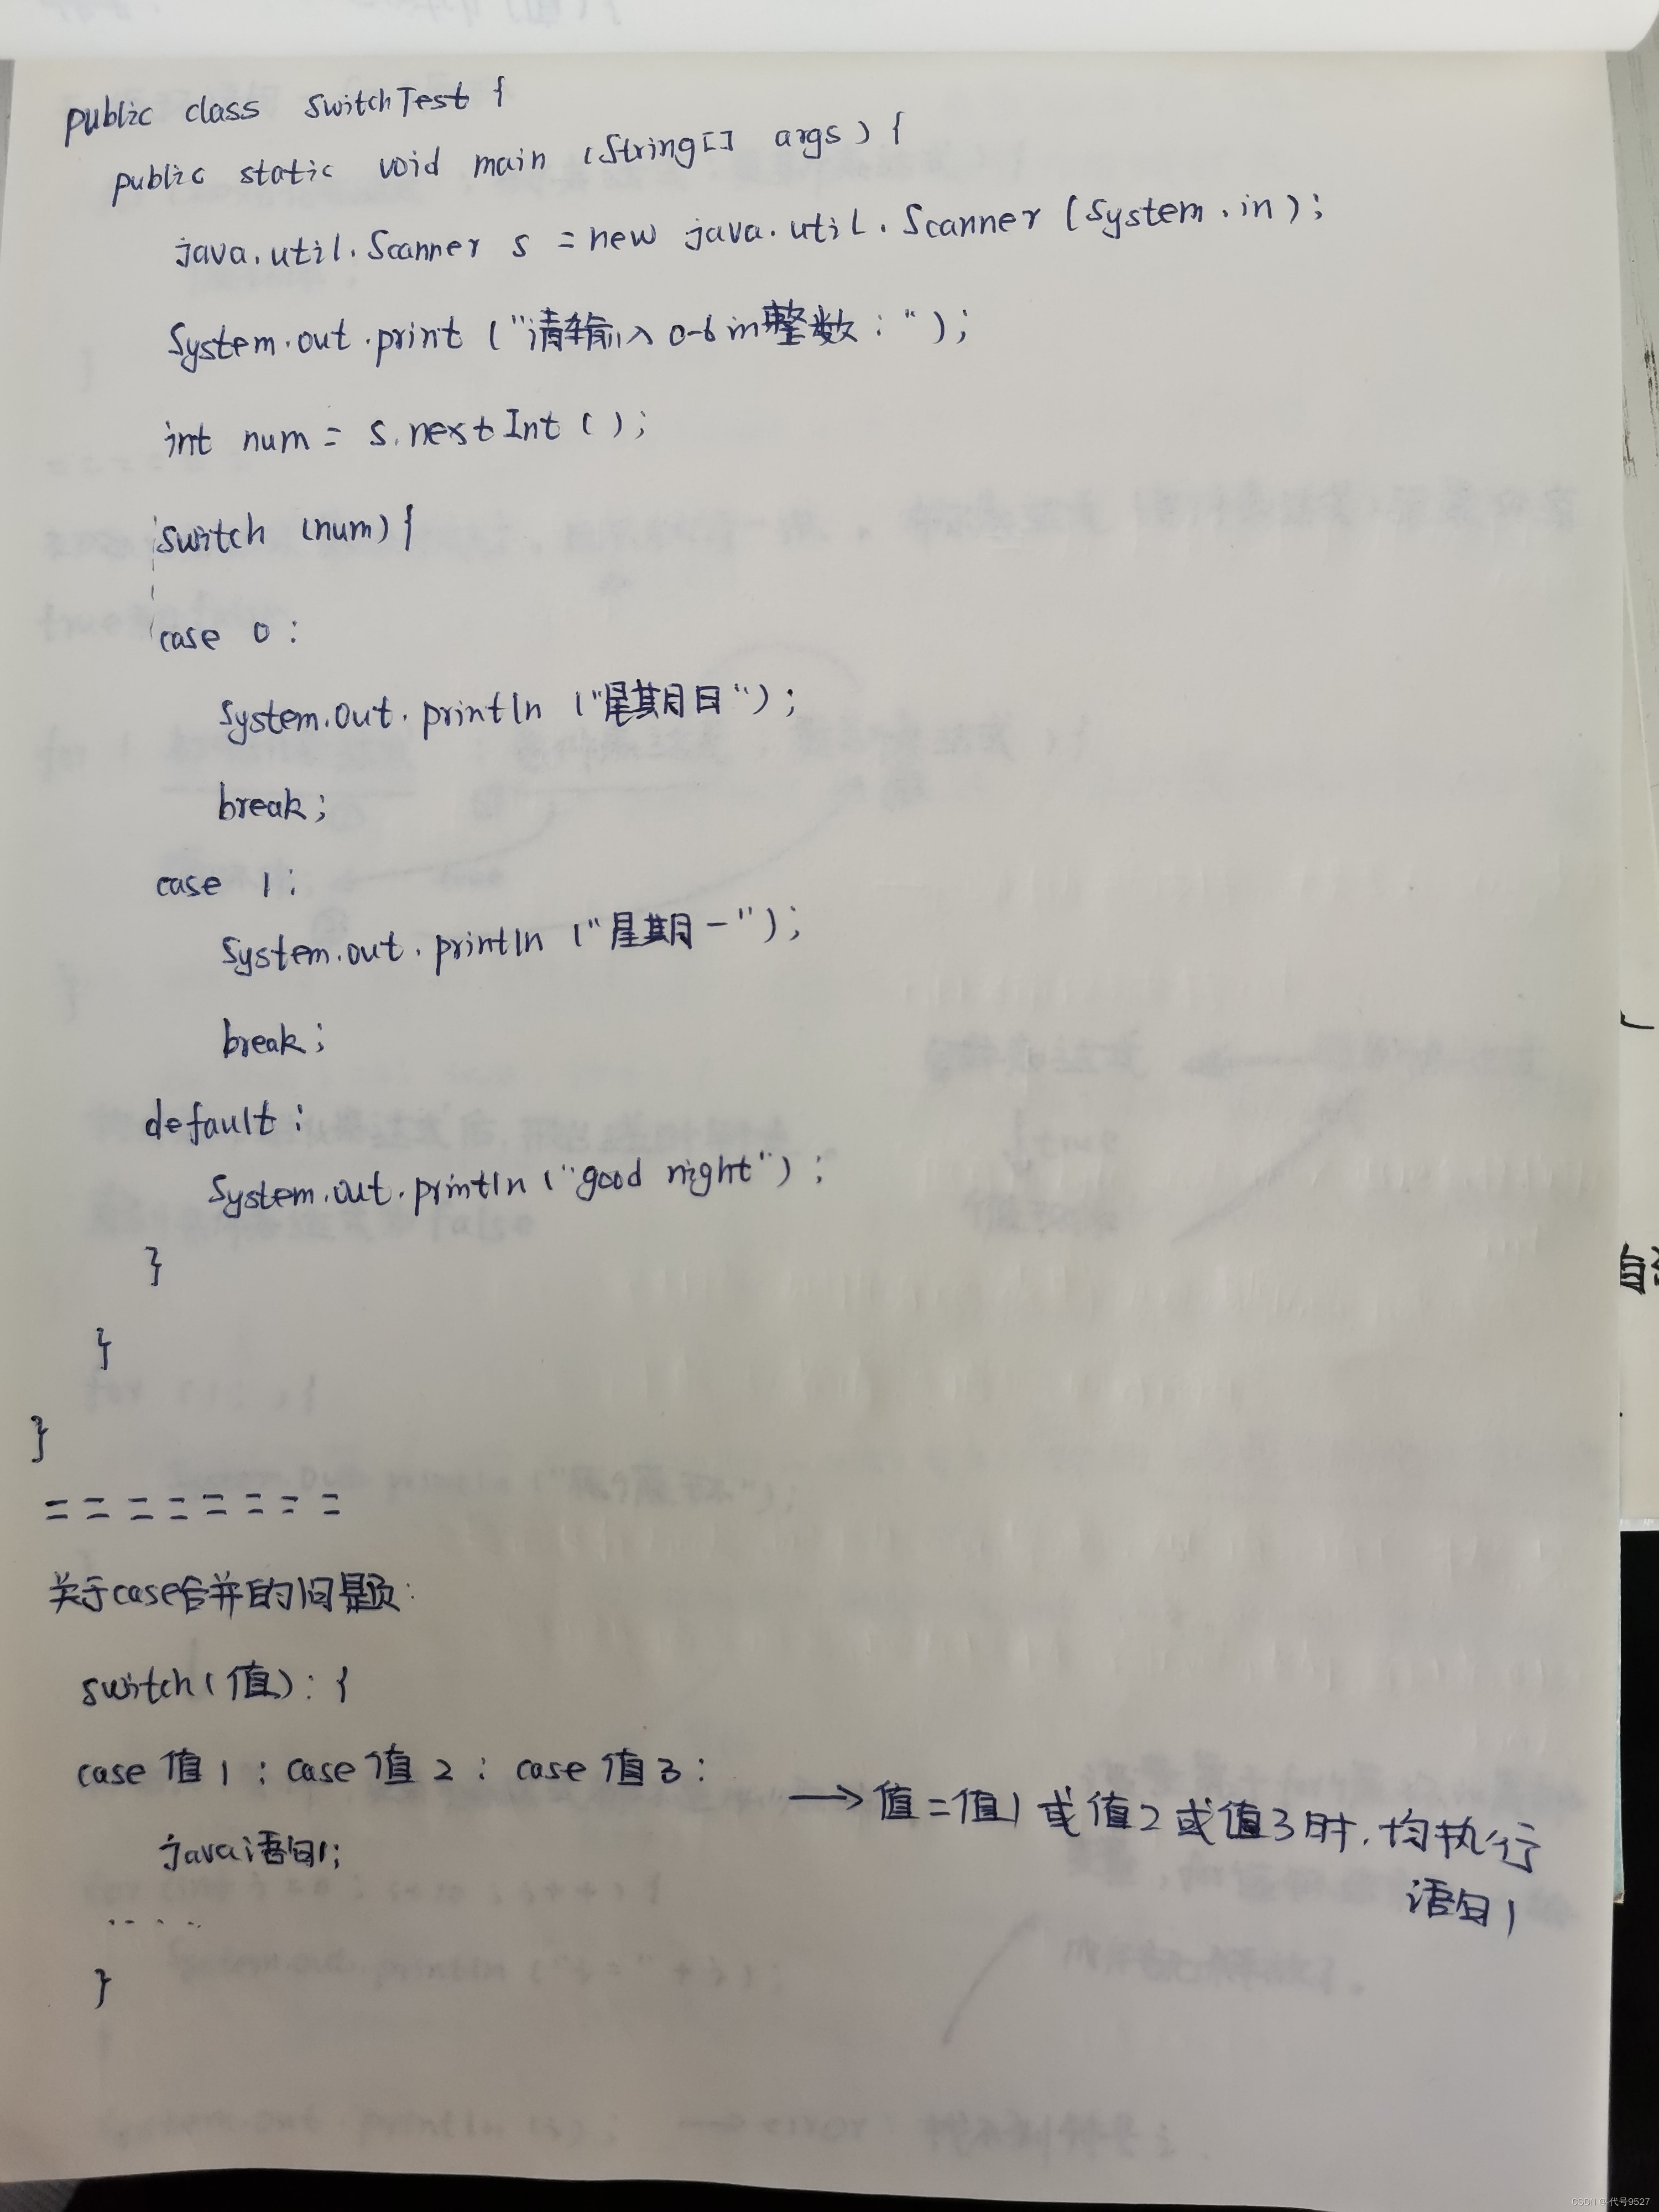 public class SwitchTest {
public static void main (String[] args) {
java.util.Scanner s = new java.util.Scanner (System.in);
System.out.print ("请输入0-6的整数:");
int num = s.nextInt ();
switch (num) {
case 0 :
System.out.println ("星期日");
break;
case 1 :
System.out.println ("星期一");
break;
default :
System.out.println ("good night") ;
}
}
}
= = = = = = = =
关于case合并的问题:
switch (值) : {
case 值1 : case 值2 : case 值3 :
java语句1;
→ 值=值1 或值2 或值3时,均执行
语句1
.....
}
CSDN @代号9527